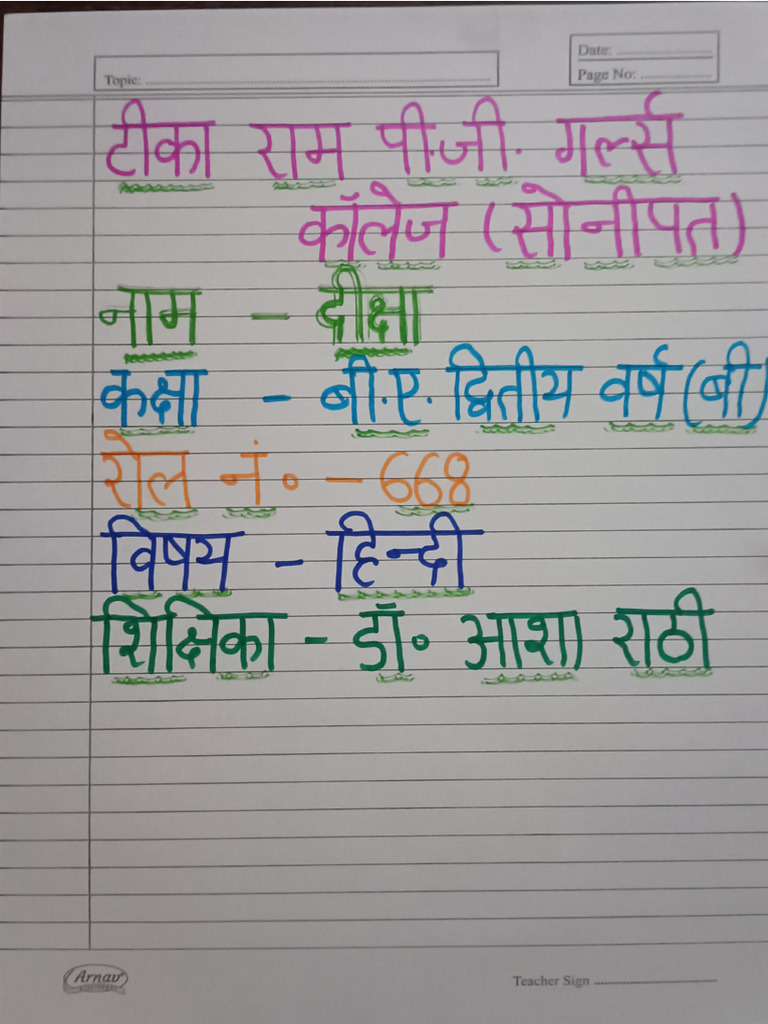 Date: ....................
Topic: ....................
Page No: ....................
टीका राम पी.जी. गर्ल्स
कॉलेज (सोनीपत)
नाम - दीक्षा
कक्षा - बी.ए. द्वितीय वर्ष (बी)
रोल नं० - 668
विषय - हिन्दी
शिक्षिका - डॉ० आशा राठी
Arnav
Teacher Sign ....................